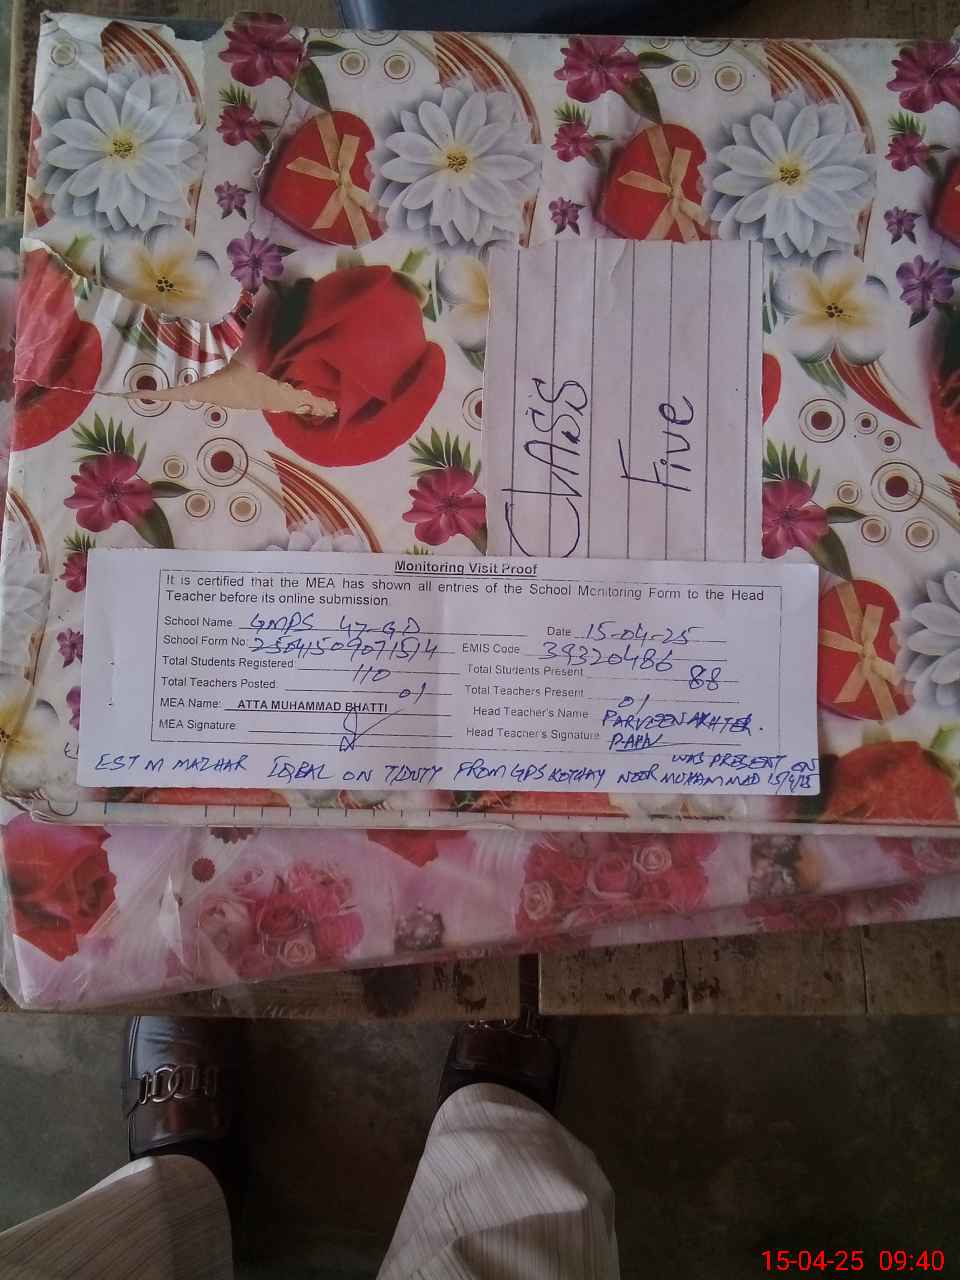 CLASS
Five
Monitoring Visit Proof
It is certified that the MEA has shown all entries of the School Monitoring Form to the Head
Teacher before its online submission.
School Name: GMPS 47-GD Date 15-04-25
School Form No: EMIS Code 39320486
Total Students Registered: 110 Total Students Present 88
Total Teachers Posted: 01 Total Teachers Present 01
MEA Name: ATTA MUHAMMAD BHATTI Head Teacher's Name PARVEEN AKHTER.
MEA Signature: Head Teacher's Signature
WAS PRESENT ON
EST M MAZHAR IQBAL ON T/DUTY FROM GPS NOOR MUHAMMAD 15/4/25
15-04-25 09:40